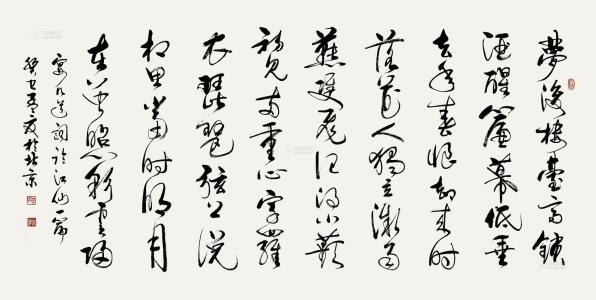 夢後樓臺高鎖
酒醒簾幕低垂
去年春恨卻來時
落花人獨立微雨
燕雙飛記得小蘋
初見兩重心字羅
衣琵琶弦上說
相思當時明月
在曾照彩雲歸
晏几道詞臨江仙一篇
癸巳於北京